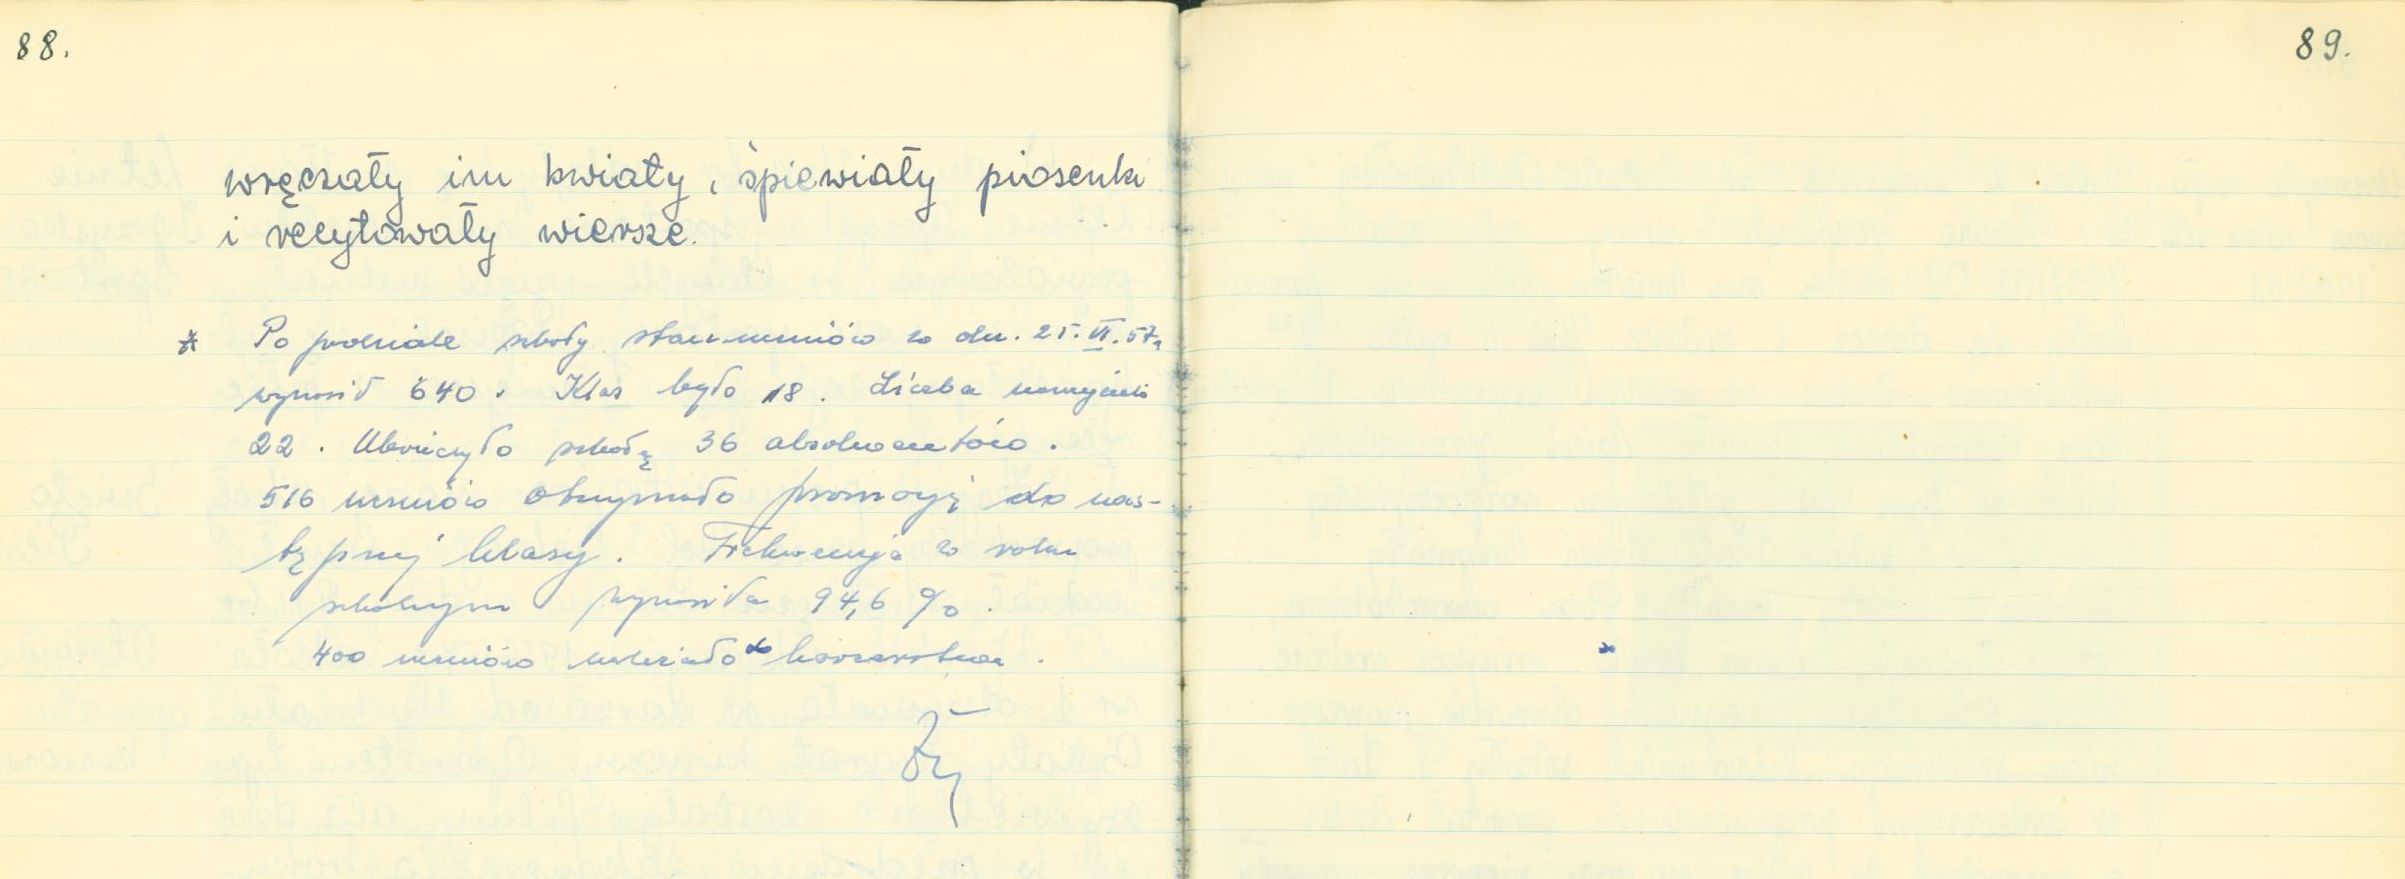 88.
wręczały im kwiaty, śpiewiały piosenki
i recytowały wiersze.
* Po podziale szkoły stan uczniów w dn. 25.VI.57r
wynosił 640. Klas było 18. Liczba nauczycieli
22. Ukończyło szkołę 36 absolwentów.
516 uczniów otrzymało promocję do nas-
tępnej klasy. Frekwencja w roku
szkolnym wynosiła 94,6 %.
400 uczniów należało do
89.